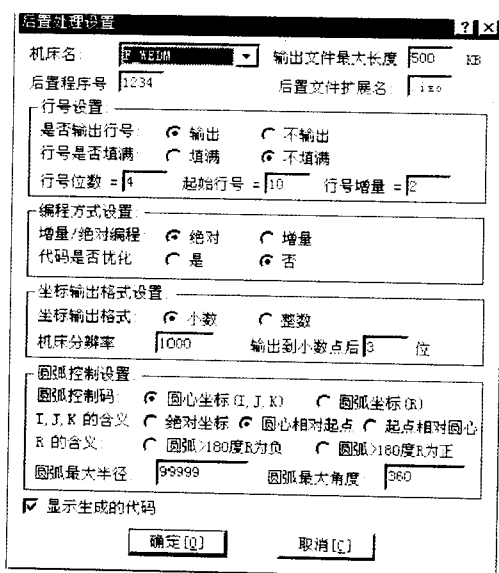 后置处理设置 ? ×
机床名: WEDM 输出文件最大长度 500 KB
后置程序号 1234 后置文件扩展名: iso
行号设置:
是否输出行号: 输出 不输出
行号是否填满: 填满 不填满
行号位数 = 4 起始行号 = 10 行号增量 = 2
编程方式设置:
增量/绝对编程: 绝对 增量
代码是否优化 是 否
坐标输出格式设置
坐标输出格式: 小数 整数
机床分辨率 1000 输出到小数点后 3 位
圆弧控制设置:
圆弧控制码: 圆心坐标(I,J,K) 圆弧坐标(R)
I,J,K 的含义: 绝对坐标 圆心相对起点 起点相对圆心
R 的含义: 圆弧>180度R为负 圆弧>180度R为正
圆弧最大半径: 99999 圆弧最大角度: 360
显示生成的代码
确定[O] 取消[C]